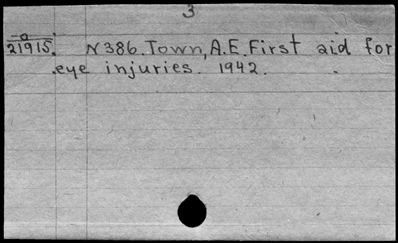 3
o
21915. N386. Town, A.E. First aid for
eye injuries. 1942.